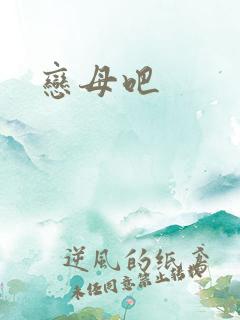 戀母吧
逆風的紙鳶
未經同意禁止轉載